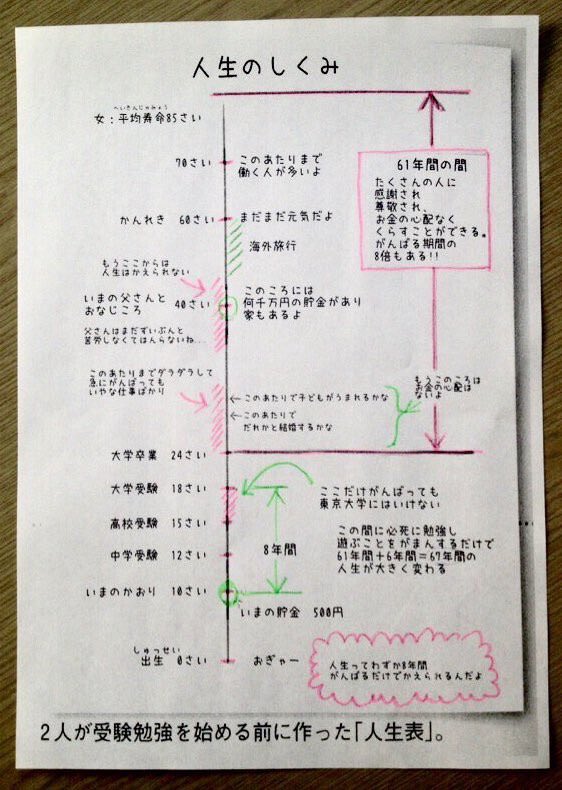 人生のしくみ
へいきんじゅみょう
女:平均寿命85さい
70さい
このあたりまで
働く人が多いよ
かんれき 60さい
まだまだ元気だよ
海外旅行
61年間の間
たくさんの人に
感謝され
尊敬され、
お金の心配なく
くらすことができる。
がんばる期間の
8倍もある!!
もうここからは
人生はかえられない
いまの父さんと
おなじころ
40さい
このころには
何千万円の貯金があり
家もあるよ
父さんはまだずいぶんと
苦労しなくてはんらないね...
このあたりまでダラダラして
急にがんばっても
いやな仕事ばかり
もうこのころは
お金の心配は
ないよ
←このあたりで子どもがうまれるかな
←このあたりで
だれかと結婚するかな
大学卒業 24さい
大学受験 18さい
ここだけがんばっても
東京大学にはいけない
高校受験 15さい
8年間
この間に必死に勉強し
遊ぶことをがまんするだけで
61年間+6年間=67年間の
人生が大きく変わる
中学受験 12さい
いまのかおり 10さい
いまの貯金 500円
しゅっせい
出生 0さい
おぎゃー
人生ってわずか8年間
がんばるだけでかえられるんだよ
2人が受験勉強を始める前に作った「人生表」。